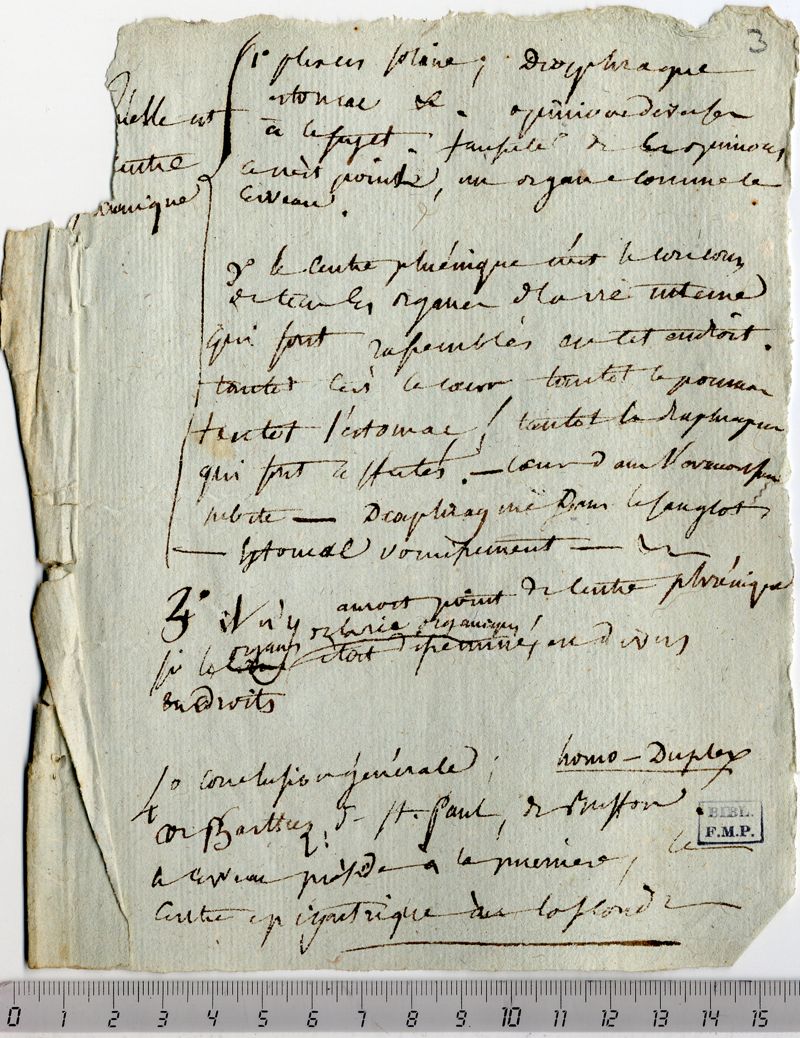 3
1° plexus solaire; Diaphragme
estomac &. opinions diverses
à ce sujet. fausseté de ces opinions,
ce n'est point un organe comme le
cerveau.
quelle est
centre
phrénique
2° le centre phrénique n'est le concours
de tous les organes d la vie interne
qui sont rassemblés en cet endroit.
tantot c'est le coeur tantot le poumon
tantot l'estomac, tantot le diaphragme
qui sont affectés. — coeur dans
subite — Diaphragme Dans le sanglot,
— Estomac vomissement —
3° il n'y auroit point de centre phrénique
si les organes de la vie organique
étoit disséminé, en divers
endroits
4° conclusion générale; homo-Duplex
de Barthez, d St. Paul, de Buffon
le cerveau préside à la premiere, le
centre epigastrique à la seconde
BIBL.
F.M.P.
0 1 2 3 4 5 6 7 8 9 10 11 12 13 14 15